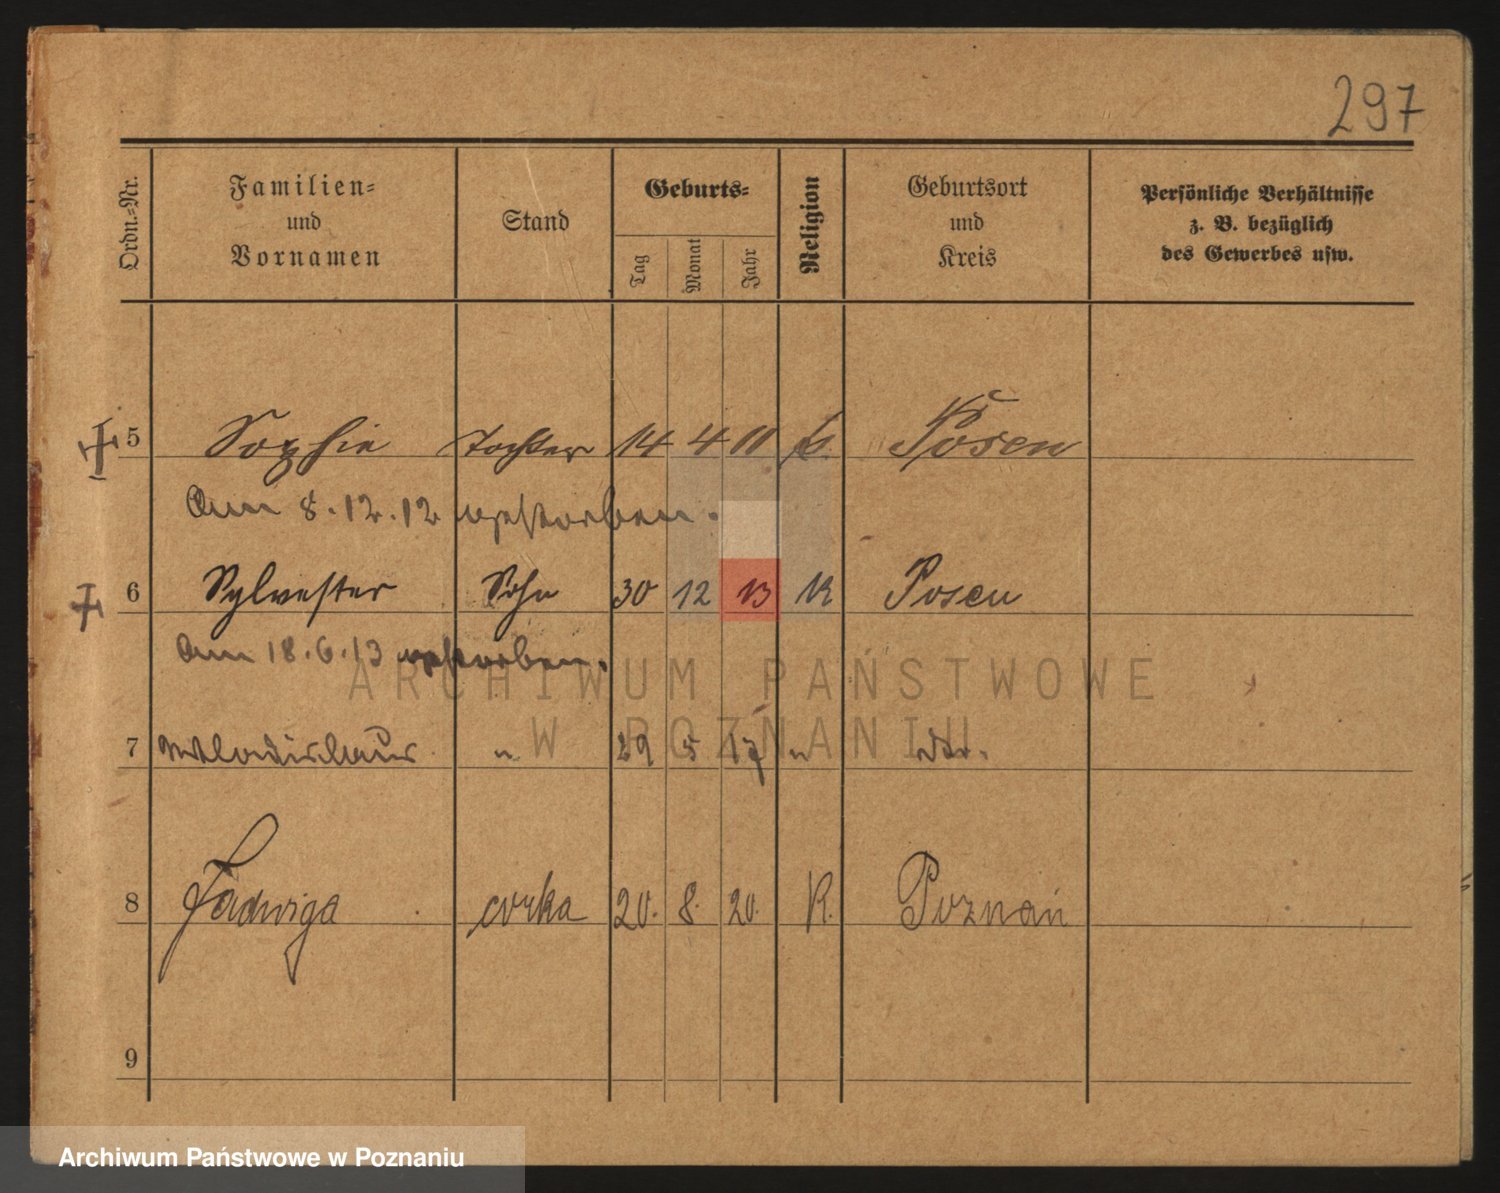 297
Ordn.-Nr. Familien- und Vornamen Stand Geburts- Tag Monat Jahr Religion Geburtsort und Kreis Persönliche Verhältnisse z. B. bezüglich des Gewerbes usw.
5 Sophie Tochter 14 4 11 k. Posen
Am 8.12.12 verstorben.
6 Sylvester Sohn 30 12 13 K Posen
Am 18.6.13 verstorben.
ARCHIWUM PAŃSTWOWE
W POZNANIU
7 Wladislaus " 29 5 17 " Dto.
8 Jadwiga corka 20. 8. 20. R. Poznań
9
Archiwum Państwowe w Poznaniu